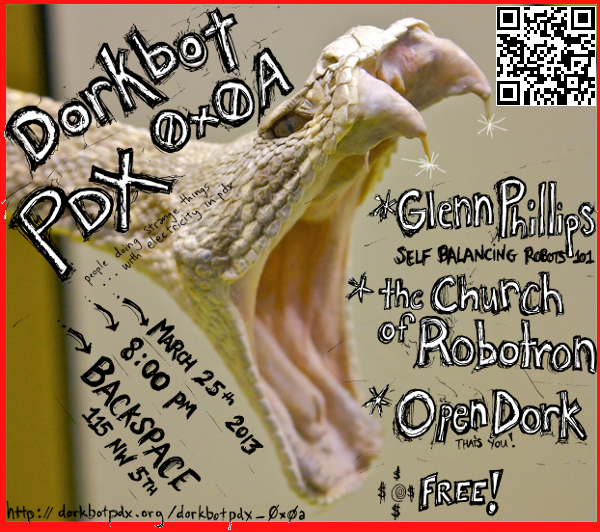 Dorkbot
PDX 0x0A
people doing strange things
.... with electricity in pdx
MARCH 25th 2013
8:00 PM
BACKSPACE
115 NW 5TH
* Glenn Phillips
SELF BALANCING ROBOTS 101
* the Church
of Robotron
* Open Dork
THAT'S YOU!
$
$ @ $ FREE!
$
http://dorkbotpdx.org/dorkbotpdx_0x0a